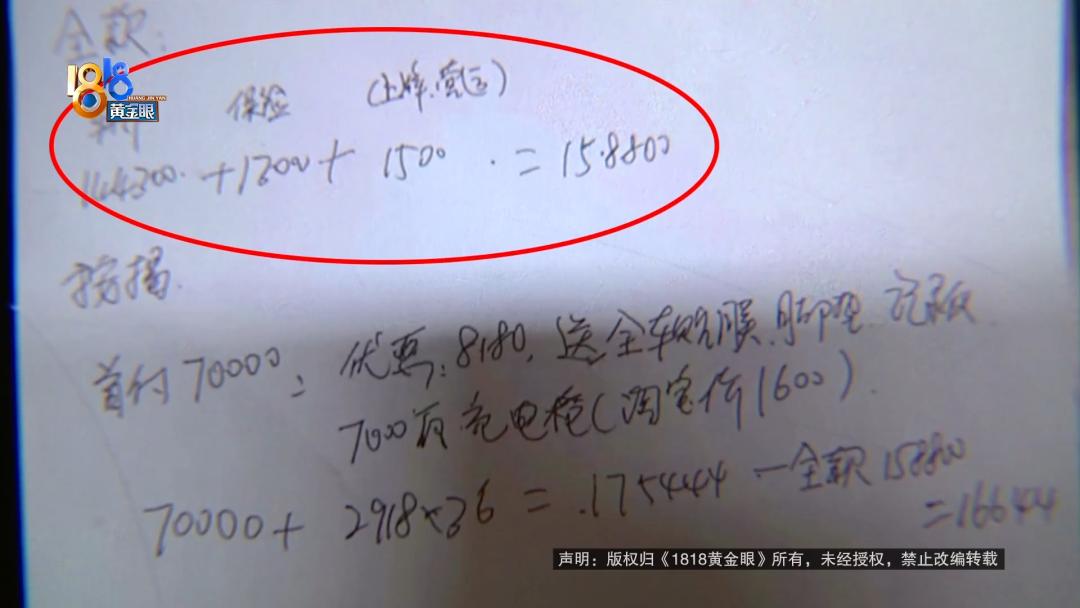 全款:
1818
HUANG JIN YAN
黄金眼
保险 (上牌、营运)
144300. +13000+ 1500 . = 15.8800
按揭.
首付70000= 优惠:8180, 送全车贴膜、脚垫 记录仪
7000瓦充电桩(淘宝价1600).
70000+ 2918×36 = .175444 — 全款15880
=16644
声明：版权归《1818黄金眼》所有，未经授权，禁止改编转载